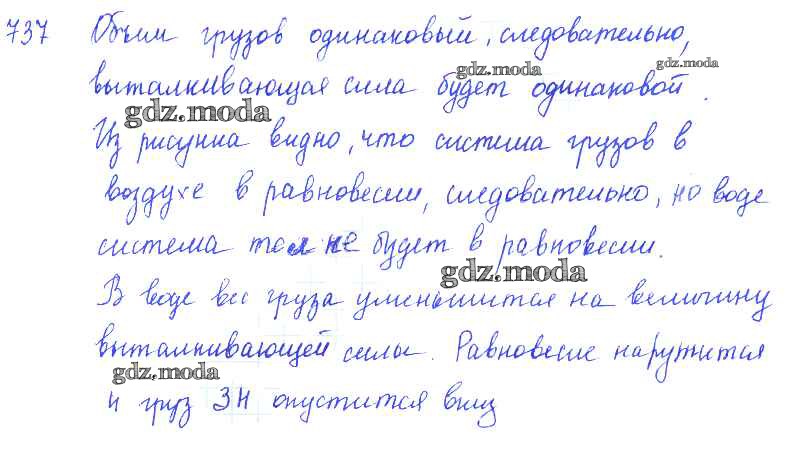 737 Объем грузов одинаковый, следовательно,
gdz.moda
gdz.moda
выталкивающая сила будет одинаковой.
gdz.moda
Из рисунка видно, что система грузов в
воздухе в равновесии, следовательно, но воде
система тел не будет в равновесии.
gdz.moda
В воде вес груза уменьшится на величину
выталкивающей силы. Равновесие нарушится
gdz.moda
и груз 3Н опустится вниз